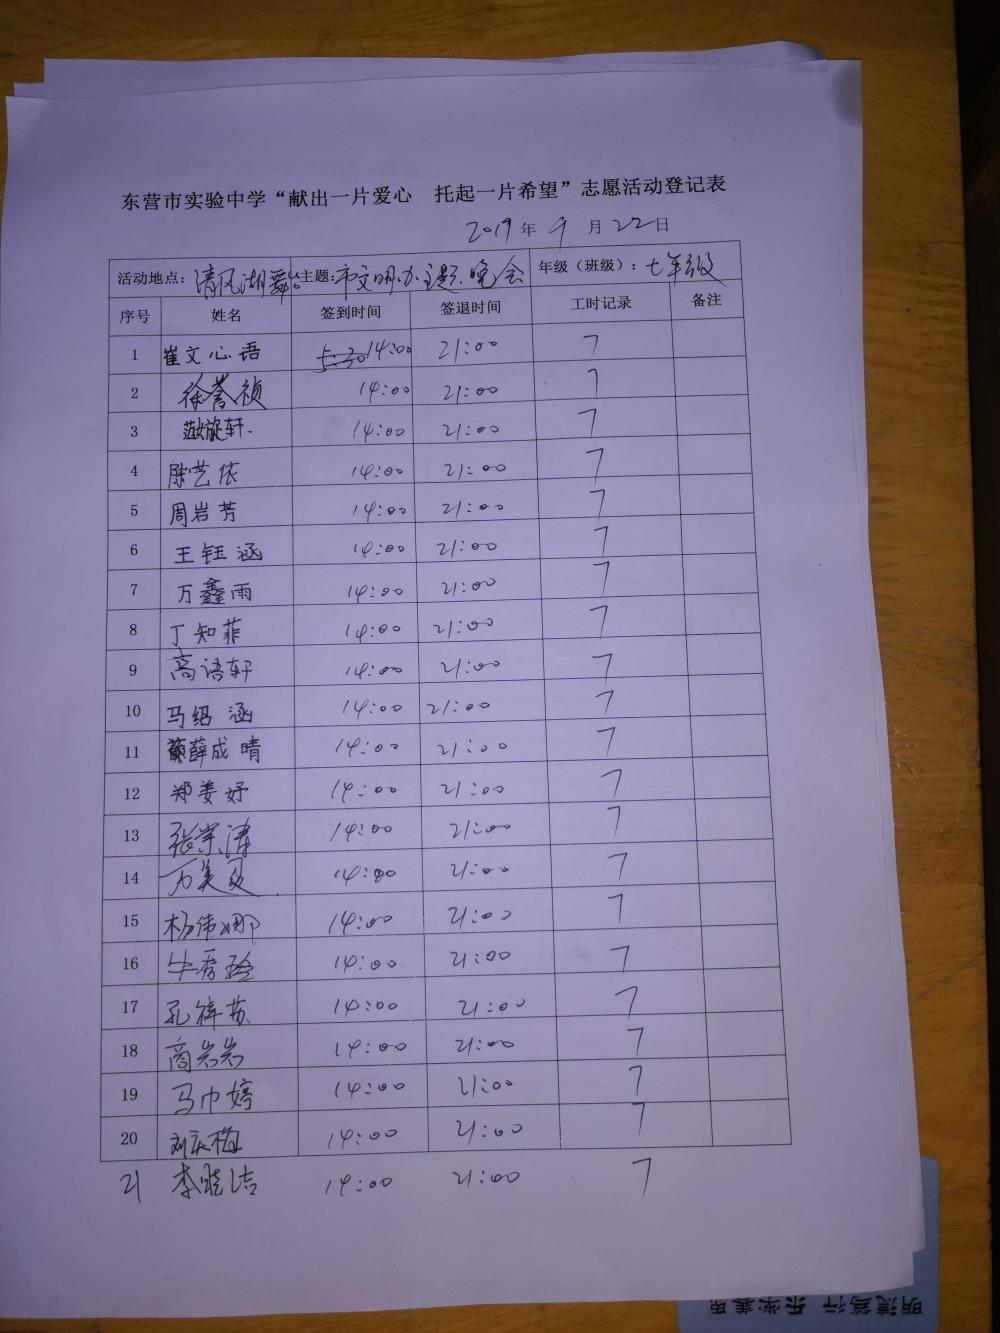 东营市实验中学“献出一片爱心 托起一片希望”志愿活动登记表
2019年9月22日
活动地点：清风湖舞台 主题：市文明办主题晚会 年级（班级）：七年级
序号 姓名 签到时间 签退时间 工时记录 备注
1 崔文心语 14:00 21:00 7
2 徐誉祯 14:00 21:00 7
3 旋轩 14:00 21:00 7
4 陈艺依 14:00 21:00 7
5 周岩芳 14:00 21:00 7
6 王钰涵 14:00 21:00 7
7 万鑫雨 14:00 21:00 7
8 丁知菲 14:00 21:00 7
9 高语轩 14:00 21:00 7
10 马绍涵 14:00 21:00 7
11 薛成晴 14:00 21:00 7
12 郑姜妤 14:00 21:00 7
13 张宗涛 14:00 21:00 7
14 万美 14:00 21:00 7
15 杨伟娜 14:00 21:00 7
16 牛秀玲 14:00 21:00 7
17 孔祥苏 14:00 21:00 7
18 商岩岩 14:00 21:00 7
19 马巾婷 14:00 21:00 7
20 刘庆梅 14:00 21:00 7
21 李晓洁 14:00 21:00 7
明德笃行 乐学善思